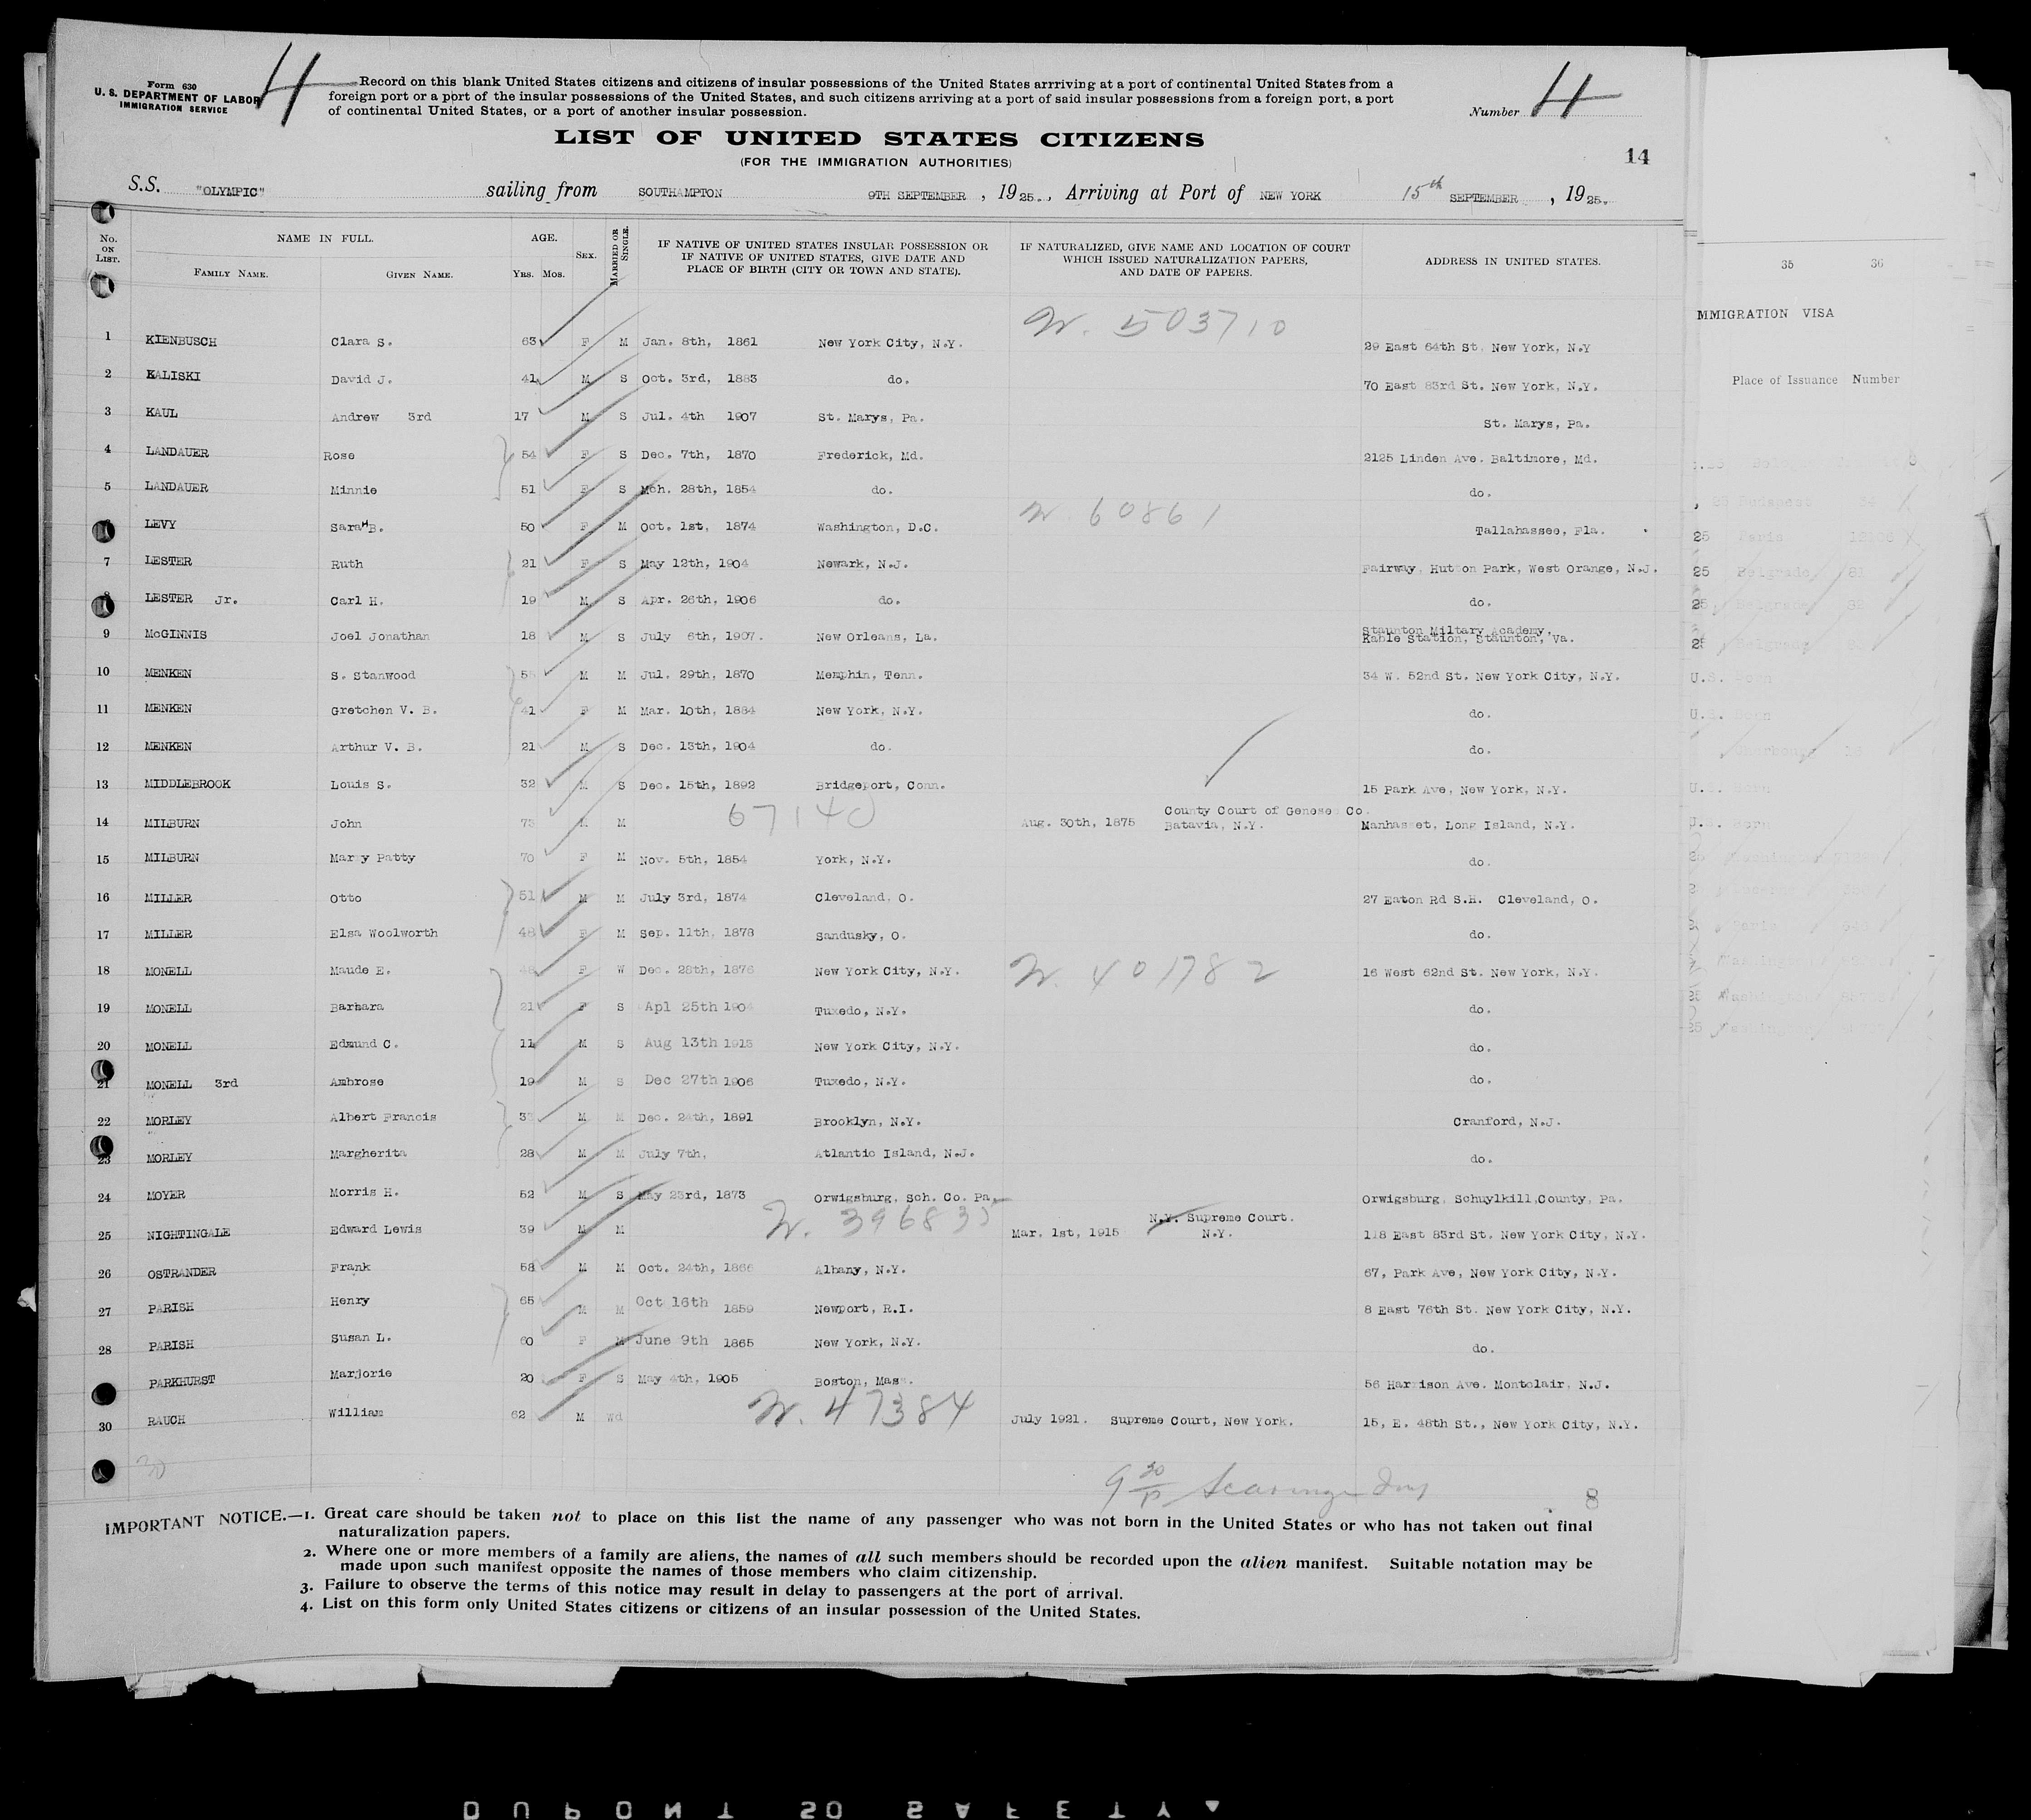 Form 630
U. S. DEPARTMENT OF LABOR
IMMIGRATION SERVICE
4
Record on this blank United States citizens and citizens of insular possessions of the United States arrriving at a port of continental United States from a
foreign port or a port of the insular possessions of the United States, and such citizens arriving at a port of said insular possessions from a foreign port, a port
of continental United States, or a port of another insular possession.
Number 4
LIST OF UNITED STATES CITIZENS
(FOR THE IMMIGRATION AUTHORITIES)
14
S.S. "OLYMPIC" sailing from SOUTHAMPTON 9TH SEPTEMBER, 1925., Arriving at Port of NEW YORK 15th SEPTEMBER, 1925.
No. ON LIST.
NAME IN FULL.
FAMILY NAME. GIVEN NAME.
AGE.
YRS. MOS.
SEX.
MARRIED OR SINGLE.
IF NATIVE OF UNITED STATES INSULAR POSSESSION OR
IF NATIVE OF UNITED STATES, GIVE DATE AND
PLACE OF BIRTH (CITY OR TOWN AND STATE).
IF NATURALIZED, GIVE NAME AND LOCATION OF COURT
WHICH ISSUED NATURALIZATION PAPERS,
AND DATE OF PAPERS.
ADDRESS IN UNITED STATES.
503710
1 KIENBUSCH Clara S. 63 F M Jan. 8th, 1861 New York City, N.Y. 29 East 64th St. New York, N.Y
2 KALISKI David J. 41 M S Oct. 3rd, 1883 do. 70 East 83rd St. New York, N.Y.
3 KAUL Andrew 3rd 17 M S Jul. 4th 1907 St. Marys, Pa. St. Marys, Pa.
4 LANDAUER Rose 54 F S Dec. 7th, 1870 Frederick, Md. 2125 Linden Ave. Baltimore, Md.
5 LANDAUER Minnie 51 F S Mch. 28th, 1854 do. do.
60861
LEVY SaraH B. 50 F M Oct. 1st, 1874 Washington, D.C. Tallahassee, Fla.
7 LESTER Ruth 21 F S May 12th, 1904 Newark, N.J. Fairway, Hutton Park, West Orange, N.J.
8 LESTER Jr. Carl H. 19 M S Apr. 26th, 1906 do. do.
9 McGINNIS Joel Jonathan 18 M S July 6th, 1907. New Orleans, La. Staunton Miltary Academy, Kable Station, Staunton, Va.
10 MENKEN S. Stanwood 55 M M Jul. 29th, 1870 Memphin, Tenn. 34 W. 52nd St. New York City, N.Y.
11 MENKEN Gretchen V. B. 41 F M Mar. 10th, 1884 New York, N.Y. do.
12 MENKEN Arthur V. B. 21 M S Dec. 13th, 1904 do. do.
13 MIDDLEBROOK Louis S. 32 M S Dec. 15th, 1892 Bridgeport, Conn. 15 Park Ave, New York, N.Y.
67140
14 MILBURN John 73 M M Aug. 30th, 1875 County Court of Genesee Co. Batavia, N.Y. Manhasset, Long Island, N.Y.
15 MILBURN Marzy Patty 70 F M Nov. 5th, 1854 York, N.Y. do.
16 MILLER Otto 51 M M July 3rd, 1874 Cleveland, O. 27 Eaton Rd S.H. Cleveland, O.
17 MILLER Elsa Woolworth 48 F M Sep. 11th, 1878 Sandusky, O. do.
18 MONELL Maude E. 48 F W Dec. 28th, 1876 New York City, N.Y. 401782 16 West 62nd St. New York, N.Y.
19 MONELL Barbara 21 F S Apl 25th 1904 Tuxedo, N.Y. do.
20 MONELL Edmund C. 11 M S Aug 13th 1913 New York City, N.Y. do.
21 MONELL 3rd Ambrose 19 M S Dec 27th 1906 Tuxedo, N.Y. do.
22 MORLEY Albert Francis 33 M M Dec. 24th, 1891 Brooklyn, N.Y. Cranford, N.J.
23 MORLEY Margherita 28 M M July 7th, Atlantic Island, N.J. do.
24 MOYER Morris H. 52 M S May 23rd, 1873 Orwigsburg, Sch. Co. Pa. Orwigsburg, Schuylkill,County, Pa.
25 NIGHTINGALE Edward Lewis 39 M M 396835 Mar. 1st, 1915 N.Y. Supreme Court. N.Y. 118 East 83rd St. New York City, N.Y.
26 OSTRANDER Frank 58 M M Oct. 24th, 1866 Albany, N.Y. 67, Park Ave, New York City, N.Y.
27 PARISH Henry 65 M M Oct 16th 1859 Newport, R.I. 8 East 76th St. New York City, N.Y.
28 PARISH Susan L. 60 F M June 9th 1865 New York, N.Y. do.
PARKHURST Marjorie 20 F S May 4th, 1905 Boston, Mass. 56 Harrison Ave. Montclair, N.J.
30 RAUCH William 62 M Wd 47384 July 1921. Supreme Court, New York. 15, E. 48th St., New York City, N.Y.
30
8
IMPORTANT NOTICE.—1. Great care should be taken not to place on this list the name of any passenger who was not born in the United States or who has not taken out final
naturalization papers.
2. Where one or more members of a family are aliens, the names of all such members should be recorded upon the alien manifest. Suitable notation may be
made upon such manifest opposite the names of those members who claim citizenship.
3. Failure to observe the terms of this notice may result in delay to passengers at the port of arrival.
4. List on this form only United States citizens or citizens of an insular possession of the United States.
35 36
MMIGRATION VISA
Place of Issuance Number
Budapest
25 Paris
25 Belgrade
25 Belgrade
25 Belgrade
U.S. Born
U.S. Born
DUPONT SO SAFETY